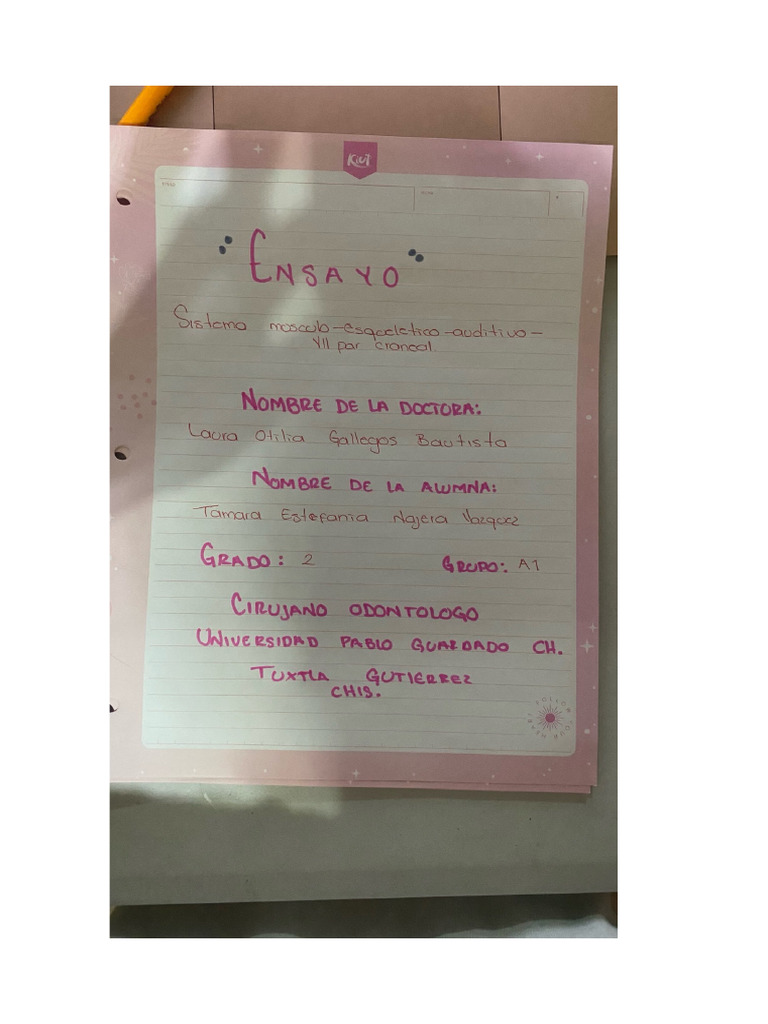 Kiut
Ensayo
Sistema musculo-esqueletico-auditivo-
VII par craneal.
NOMBRE DE LA DOCTORA:
Laura Otilia Gallegos Bautista
NOMBRE DE LA ALUMNA:
Tamara Estefania Najera Vazquez
GRADO: 2 GRUPO: A1
CIRUJANO ODONTOLOGO
UNIVERSIDAD PABLO GUARDADO CH.
TUXTLA GUTIERREZ
CHIS.
FOLLOW YOUR HEART